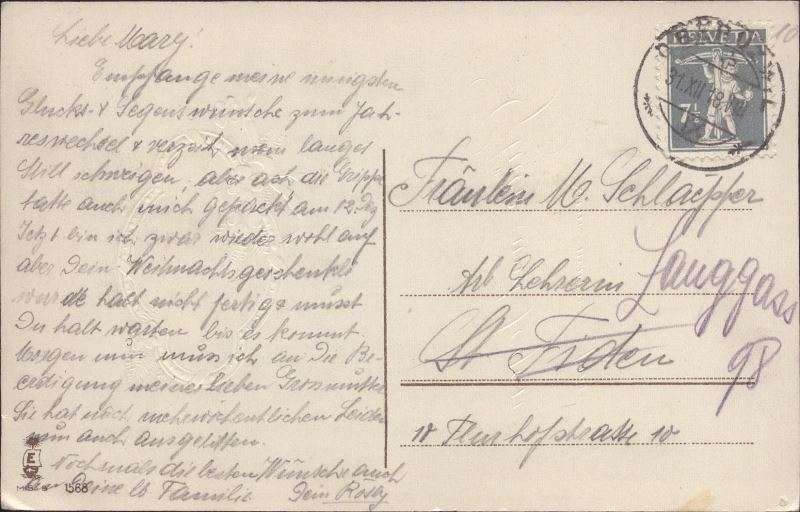 Liebe Mary!
Empfange meine innigsten
Glücks- & Segenswünsche zum Jah-
reswechsel & verzeih mein langes
Still schweigen, aber ach die Grippe
hatte auch mich gepackt am 12. Dez
Jetzt bin ich zwar wieder wohl auf
aber Dein Weihnachtsgeschenkli
wurde halt nicht fertig & musst
Du halt warten bis es kommt.
Morgen nun muss ich an die Be-
erdigung meiner lieben Grossmutter
Sie hat nach mehrwöchentlichen Leiden
nun auch ausgelitten.
Nochmals die besten Wünsche auch
an Deine lb. Familie Dein Rösly
HELVETIA
7½
31.XII.18
10
Fräulein M. Schlaepfer
Lehrerin Langgass
St Fiden 98
10 Flurhofstrasse 10
E
1568